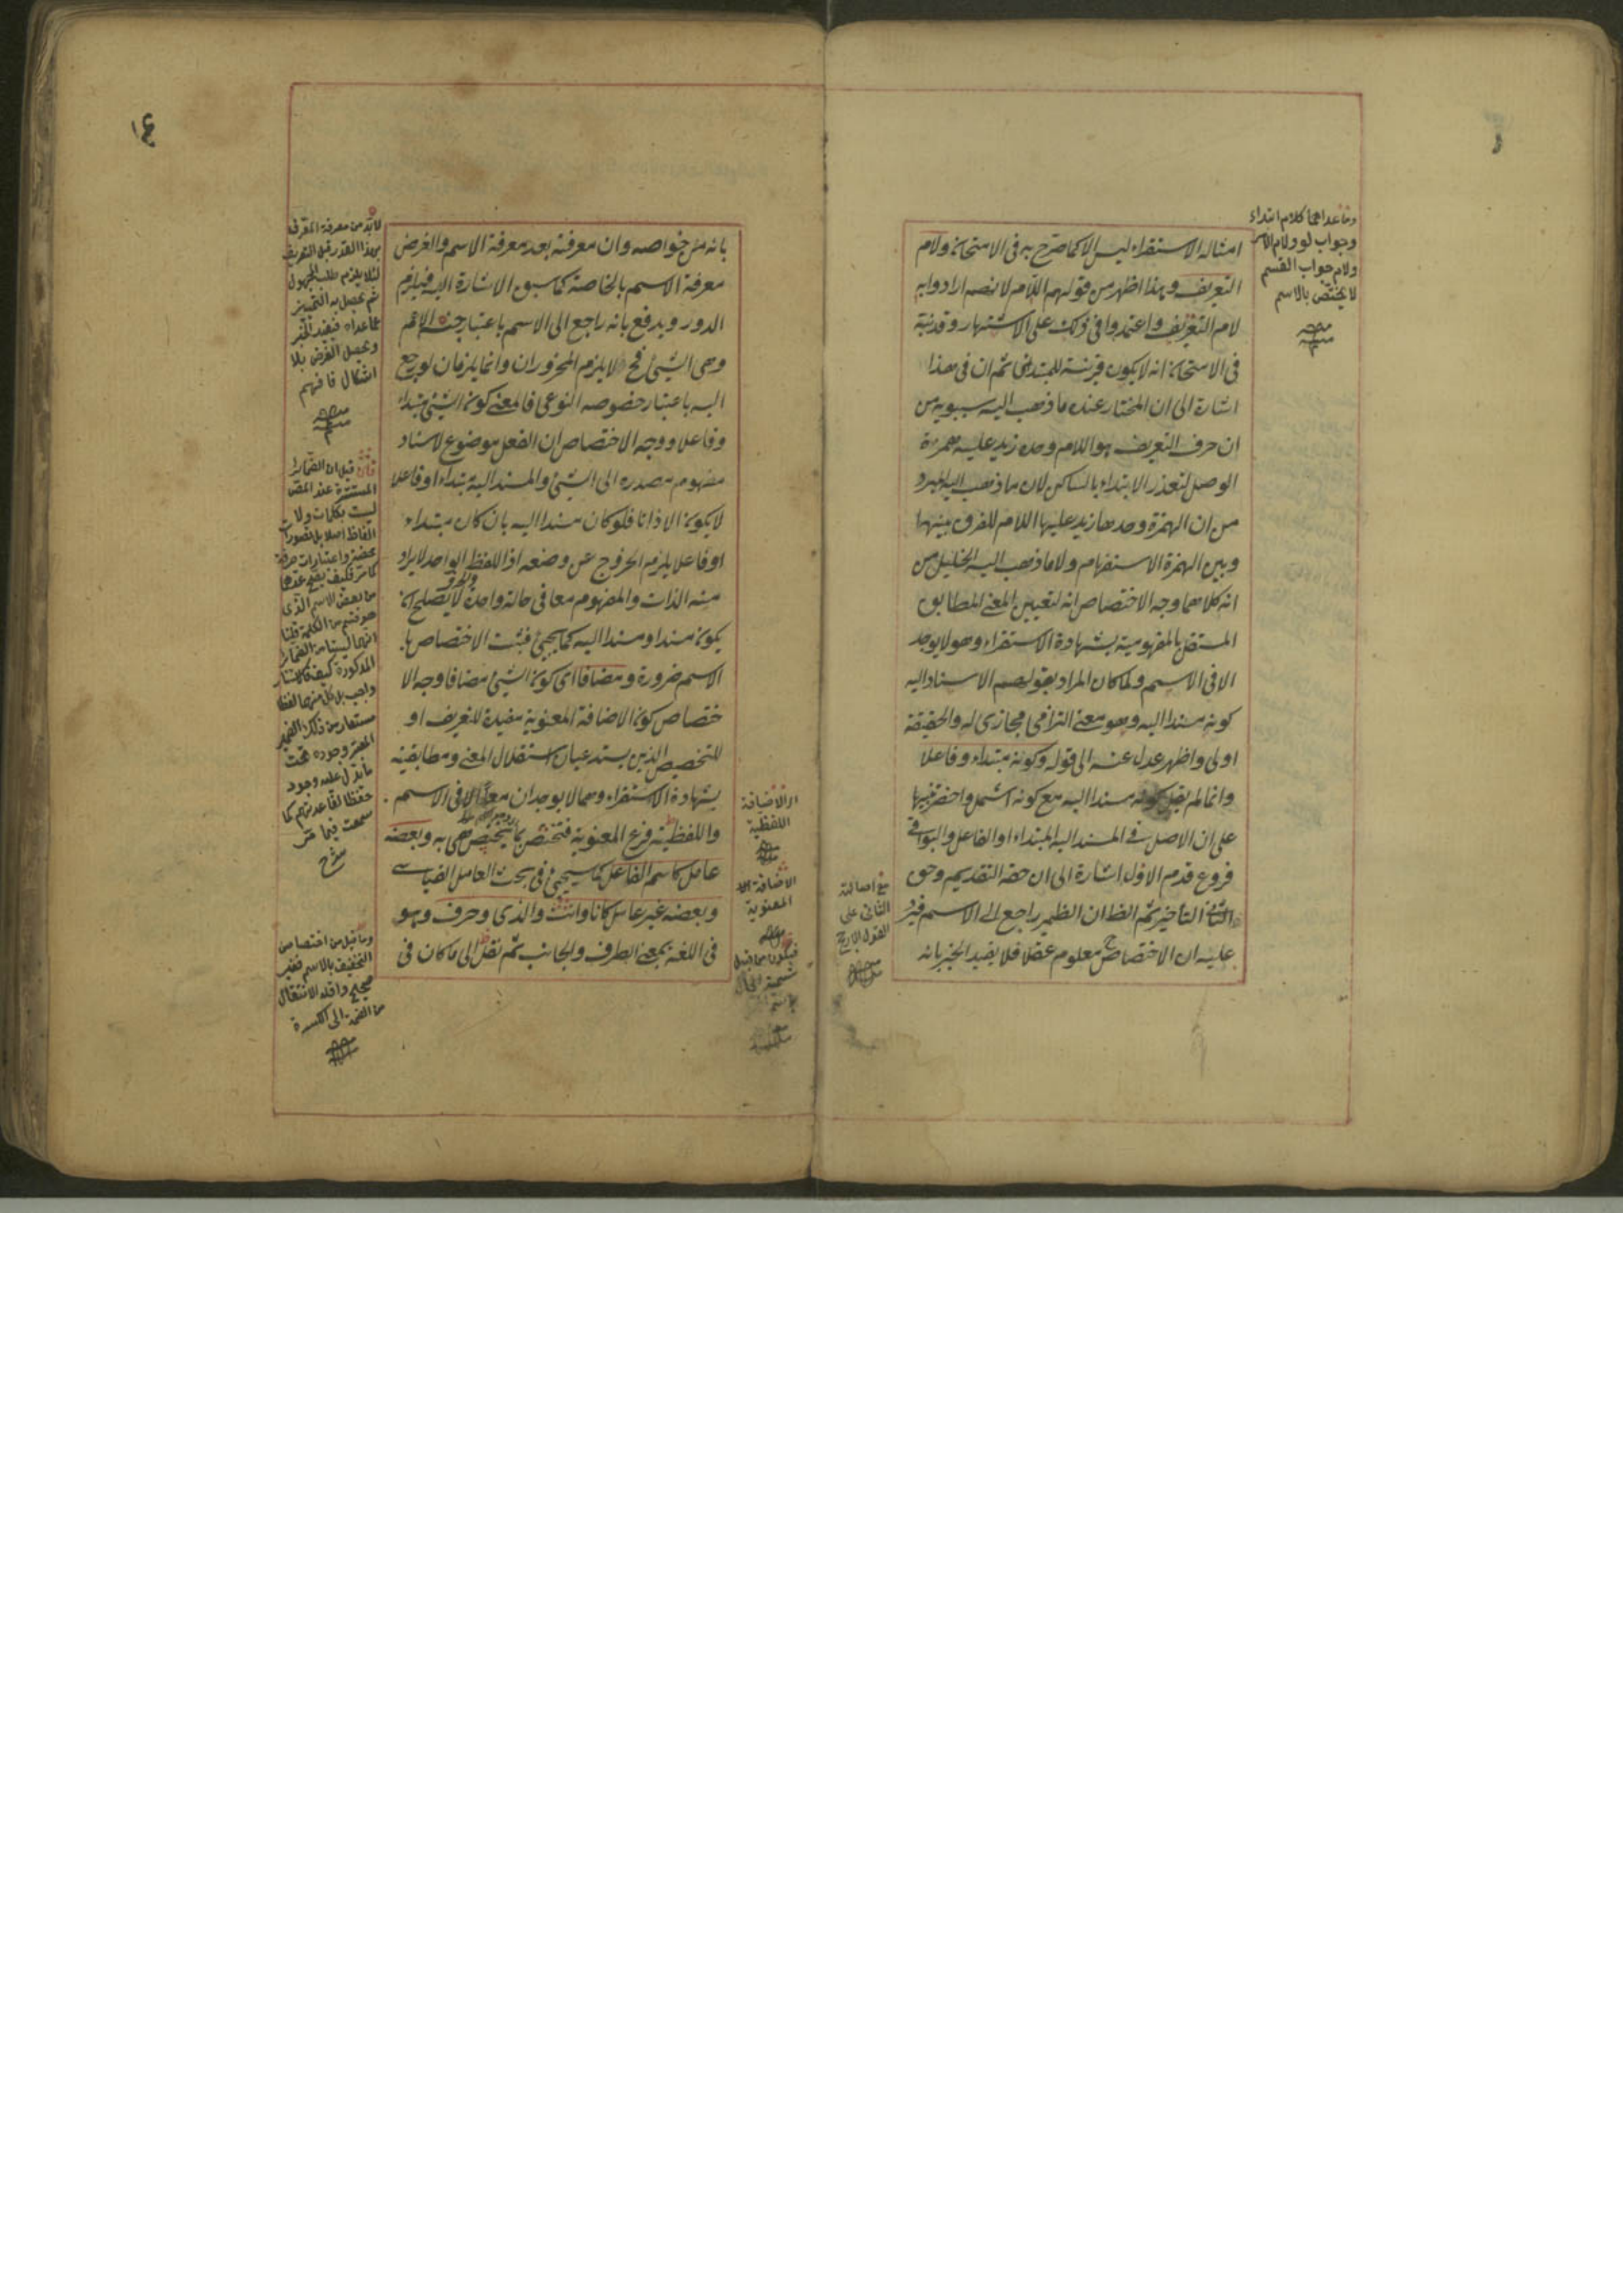 امثاله الاستقراء ليس الا كما صرح به فى الامتحان ولام
التعريف وهذا اظهر من قولهم اللام لانهم ارادوا به
لام التعريف واعتمدوا فى ذلك على الاشتهار وقد نبه
فى الامتحان انه لا يكون قرينة للمبتدئ ثم ان فى هذا
اشارة الى ان المختار عنده ما ذهب اليه سيبويه من
ان حرف التعريف هو اللام وحده زيد عليه همزة
الوصل لتعذر الابتداء بالساكن لان ما ذهب اليه المبرد
من ان الهمزة وحدها زيد عليها اللام للفرق بينهما
وبين الهمزة الاستفهام ولا ما ذهب اليه الخليل من
انه كلاهما وجه الاختصاص انه لتعيين المعنى المطابق
المستقل بالمفهومية بشهادة الاستقراء وهو لا يوجد
الا فى الاسم ولما كان المراد بقولهم الاسناد اليه
كونه مسندا اليه وهو معنى التزامى مجازى له والحقيقة
اولى واظهر عدل عنه الى قوله وكونه مبتداء وفاعلا
وانما لم يقل كونه مسندا اليه مع كونه اشمل واخصر تنبيها
على ان الاصل فى المسند اليه المبتداء او الفاعل والبواقى
فروع قدم الاول اشارة الى ان حقه التقديم وحق
الثانى التأخير ثم الظ ان الظمير راجع الى الاسم فيرد
عليه ان الاختصاص ح معلوم عقلا فلا يفيد الخبر بانه
وما عداهما كلام ابتداء
وجواب لو ولام الامر
ولام جواب القسم
لا يختص بالاسم
منه
مع اصالة
الثانى على
القول الارجح
منه
١٤
بانه من خواصه وان معرفته بعد معرفة الاسم والغرض
معرفة الاسم بالخاصة كما سبق الاشارة اليه فيلزم
الدور ويدفع بانه راجع الى الاسم باعتبار جنسه الاعم
وهى الشئ فح لا يلزم المحذوران وانما يلزمان لو رجع
اليه باعتبار خصوصه النوعى فالمعنى كون الشئ مبتداء
وفاعلا ووجه الاختصاص ان الفعل موضوع لاسناد
مفهوم مصدره الى الشئ والمسند اليه مبتداء او فاعلا
لا يكون الا ذاتا فلو كان مسندا اليه بان كان مبتداء
او فاعلا يلزم الخروج عن وضعه اذ اللفظ الواحد لا يراد
منه الذات والمفهوم معا فى حالة واحدة والحرف لا يصلح ان
يكون مسندا ومسندا اليه كما يجئ فثبت الاختصاص با
الاسم ضرورة ومضافا اى كون الشئ مضافا وجه الا
ختصاص كون الاضافة المعنوية مفيدة للتعريف او
للتخصيص الذين يستدعيان استقلال المعنى ومطابقيته
بشهادة الاستقراء وهما لا يوجدان معا الا فى الاسم
واللفظية فرع المعنوية فتختص بما يختص هى به وبعضه
عامل كاسم الفاعل كما سيجئ فى بحث العامل القياسى
وبعضه غير عامل كانا وانت والذى وحرف وهو
فى اللغة بمعنى الطرف والجانب ثم نقل الى ما كان فى
لابد من معرفة المعرف
بهذا القدر قبل التعريف
لئلا يلزم طلب المجهول
ثم يحصل به التمييز
عما عداه فيفيد الخبر
ويحصل الغرض بلا
اشكال فافهم
منه
قيل ان الضمائر
المستترة عند المص
ليست بكلمات ولا
الفاظ اصلا بل تصورات
محضة واعتبارات صرفة
كما مر فكيف يصح عدها
من بعض الاسم الذى
هو قسم من الكلمة قلنا
مستعار من ذلك الضمير
حفظا لقاعدتهم كما
سمعت فيما مر
شرح
وما قيل من اختصاص
التخفيف بالاسم فغير
صحيح
من الضمة الى الكسرة
منه
اى الاضافة
اللفظية
منه
الاضافة
المعنوية
منه